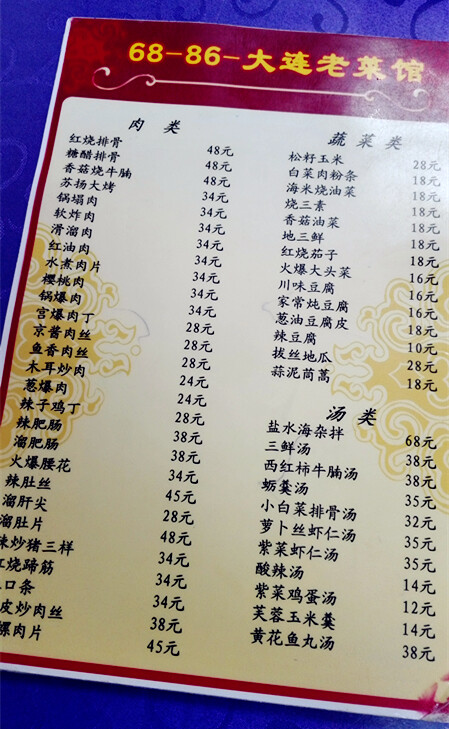 68-86-大连老菜馆
肉 类
红烧排骨 48元
糖醋排骨 48元
香菇烧牛腩 48元
苏扬大烤 34元
锅塌肉 34元
软炸肉 34元
滑溜肉 34元
红油肉 34元
水煮肉片 34元
樱桃肉 34元
锅爆肉 34元
宫爆肉丁 28元
京酱肉丝 28元
鱼香肉丝 28元
木耳炒肉 24元
葱爆肉 24元
辣子鸡丁 28元
辣肥肠 38元
溜肥肠 38元
火爆腰花 34元
辣肚丝 45元
溜肝尖 28元
溜肚片 48元
炒猪三样 34元
烧蹄筋 34元
口条 34元
皮炒肉丝 38元
肉片 45元
蔬 菜 类
松籽玉米 28元
白菜肉粉条 18元
海米烧油菜 18元
烧三素 18元
香菇油菜 18元
地三鲜 18元
红烧茄子 18元
火爆大头菜 16元
川味豆腐 16元
家常炖豆腐 16元
葱油豆腐皮 16元
辣豆腐 10元
拔丝地瓜 28元
蒜泥茼蒿 18元
汤 类
盐水海杂拌 68元
三鲜汤 38元
西红柿牛腩汤 38元
蛎羹汤 35元
小白菜排骨汤 32元
萝卜丝虾仁汤 35元
紫菜虾仁汤 35元
酸辣汤 14元
紫菜鸡蛋汤 12元
芙蓉玉米羹 14元
黄花鱼丸汤 38元